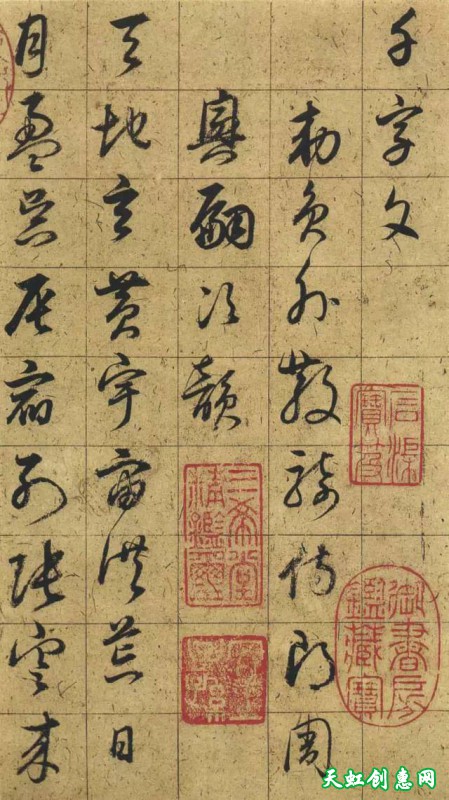 千字文
勅員外散騎侍郎周
興嗣次韻
天地玄黄宇宙洪荒日
月盈昃辰宿列張寒来
石渠寶笈
三希堂精鑑璽
御書房鑑藏寶
天虹创惠网